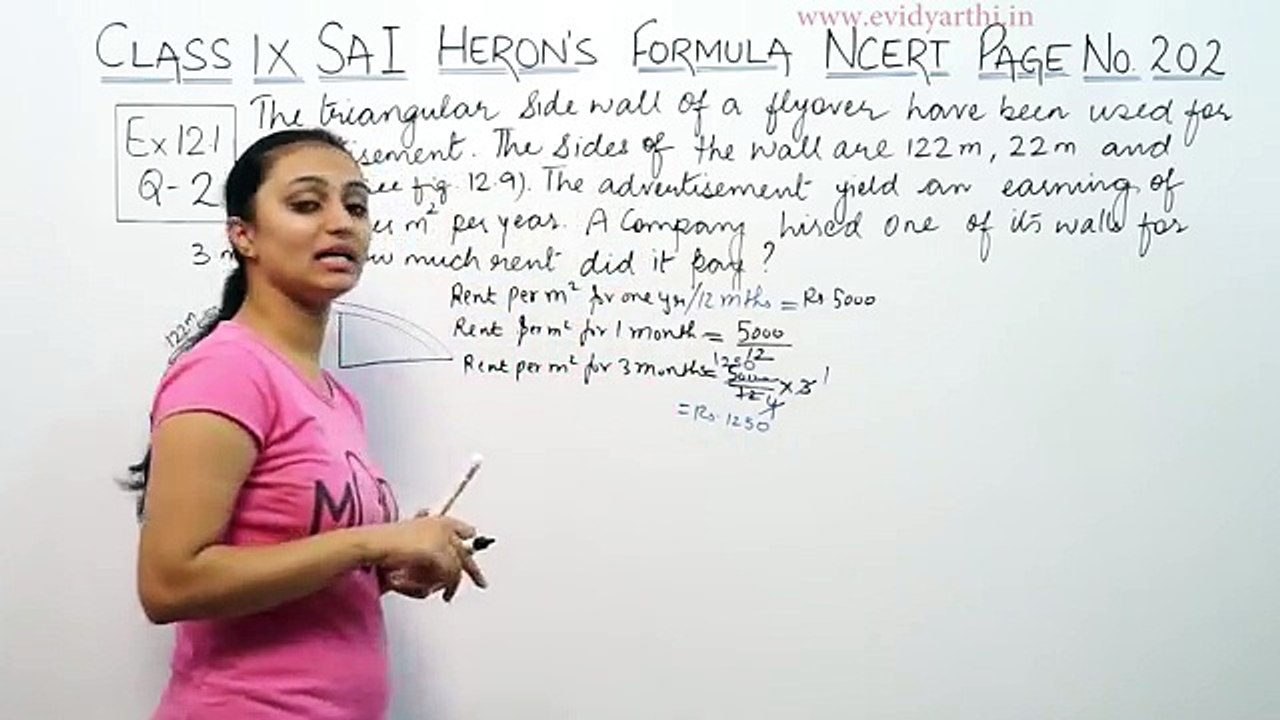 www.evidyarthi.in
CLASS IX SA I HERON'S FORMULA NCERT PAGE No. 202
Ex 12.1
Q-2
The triangular side wall of a flyover have been used for
isement. The sides of the wall are 122 m, 22 m and
see fig. 12.9). The advertisement yield an earning of
m² per year. A Company hired one of its walls for
3 much rent did it pay?
122 m
Rent per m² for one yr/12 mths = Rs 5000
Rent per m² for 1 month = 5000
12
Rent per m² for 3 months = 5000 × 3 1
1250
12 4
= Rs. 1250